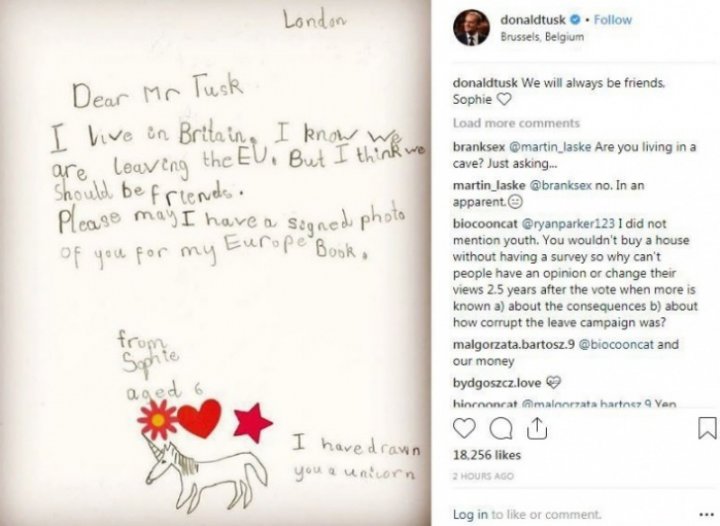 London
Dear Mr Tusk
I live in Britain. I know we
are leaving the EU. But I think we
should be friends.
Please may I have a signed photo
of you for my Europe Book.
from
Sophie
aged 6
I have drawn
you a unicorn
donaldtusk • Follow
Brussels, Belgium
donaldtusk We will always be friends,
Sophie ♡
Load more comments
branksex @martin_laske Are you living in a
cave? Just asking...
martin_laske @branksex no. In an
apparent.
biocooncat @ryanparker123 I did not
mention youth. You wouldn't buy a house
without having a survey so why can't
people have an opinion or change their
views 2.5 years after the vote when more is
known a) about the consequences b) about
how corrupt the leave campaign was?
malgorzata.bartosz.9 @biocooncat and
our money
bydgoszcz.love
biocooncat @malgorzata.bartosz.9 Yep
18,256 likes
2 HOURS AGO
Log in to like or comment.